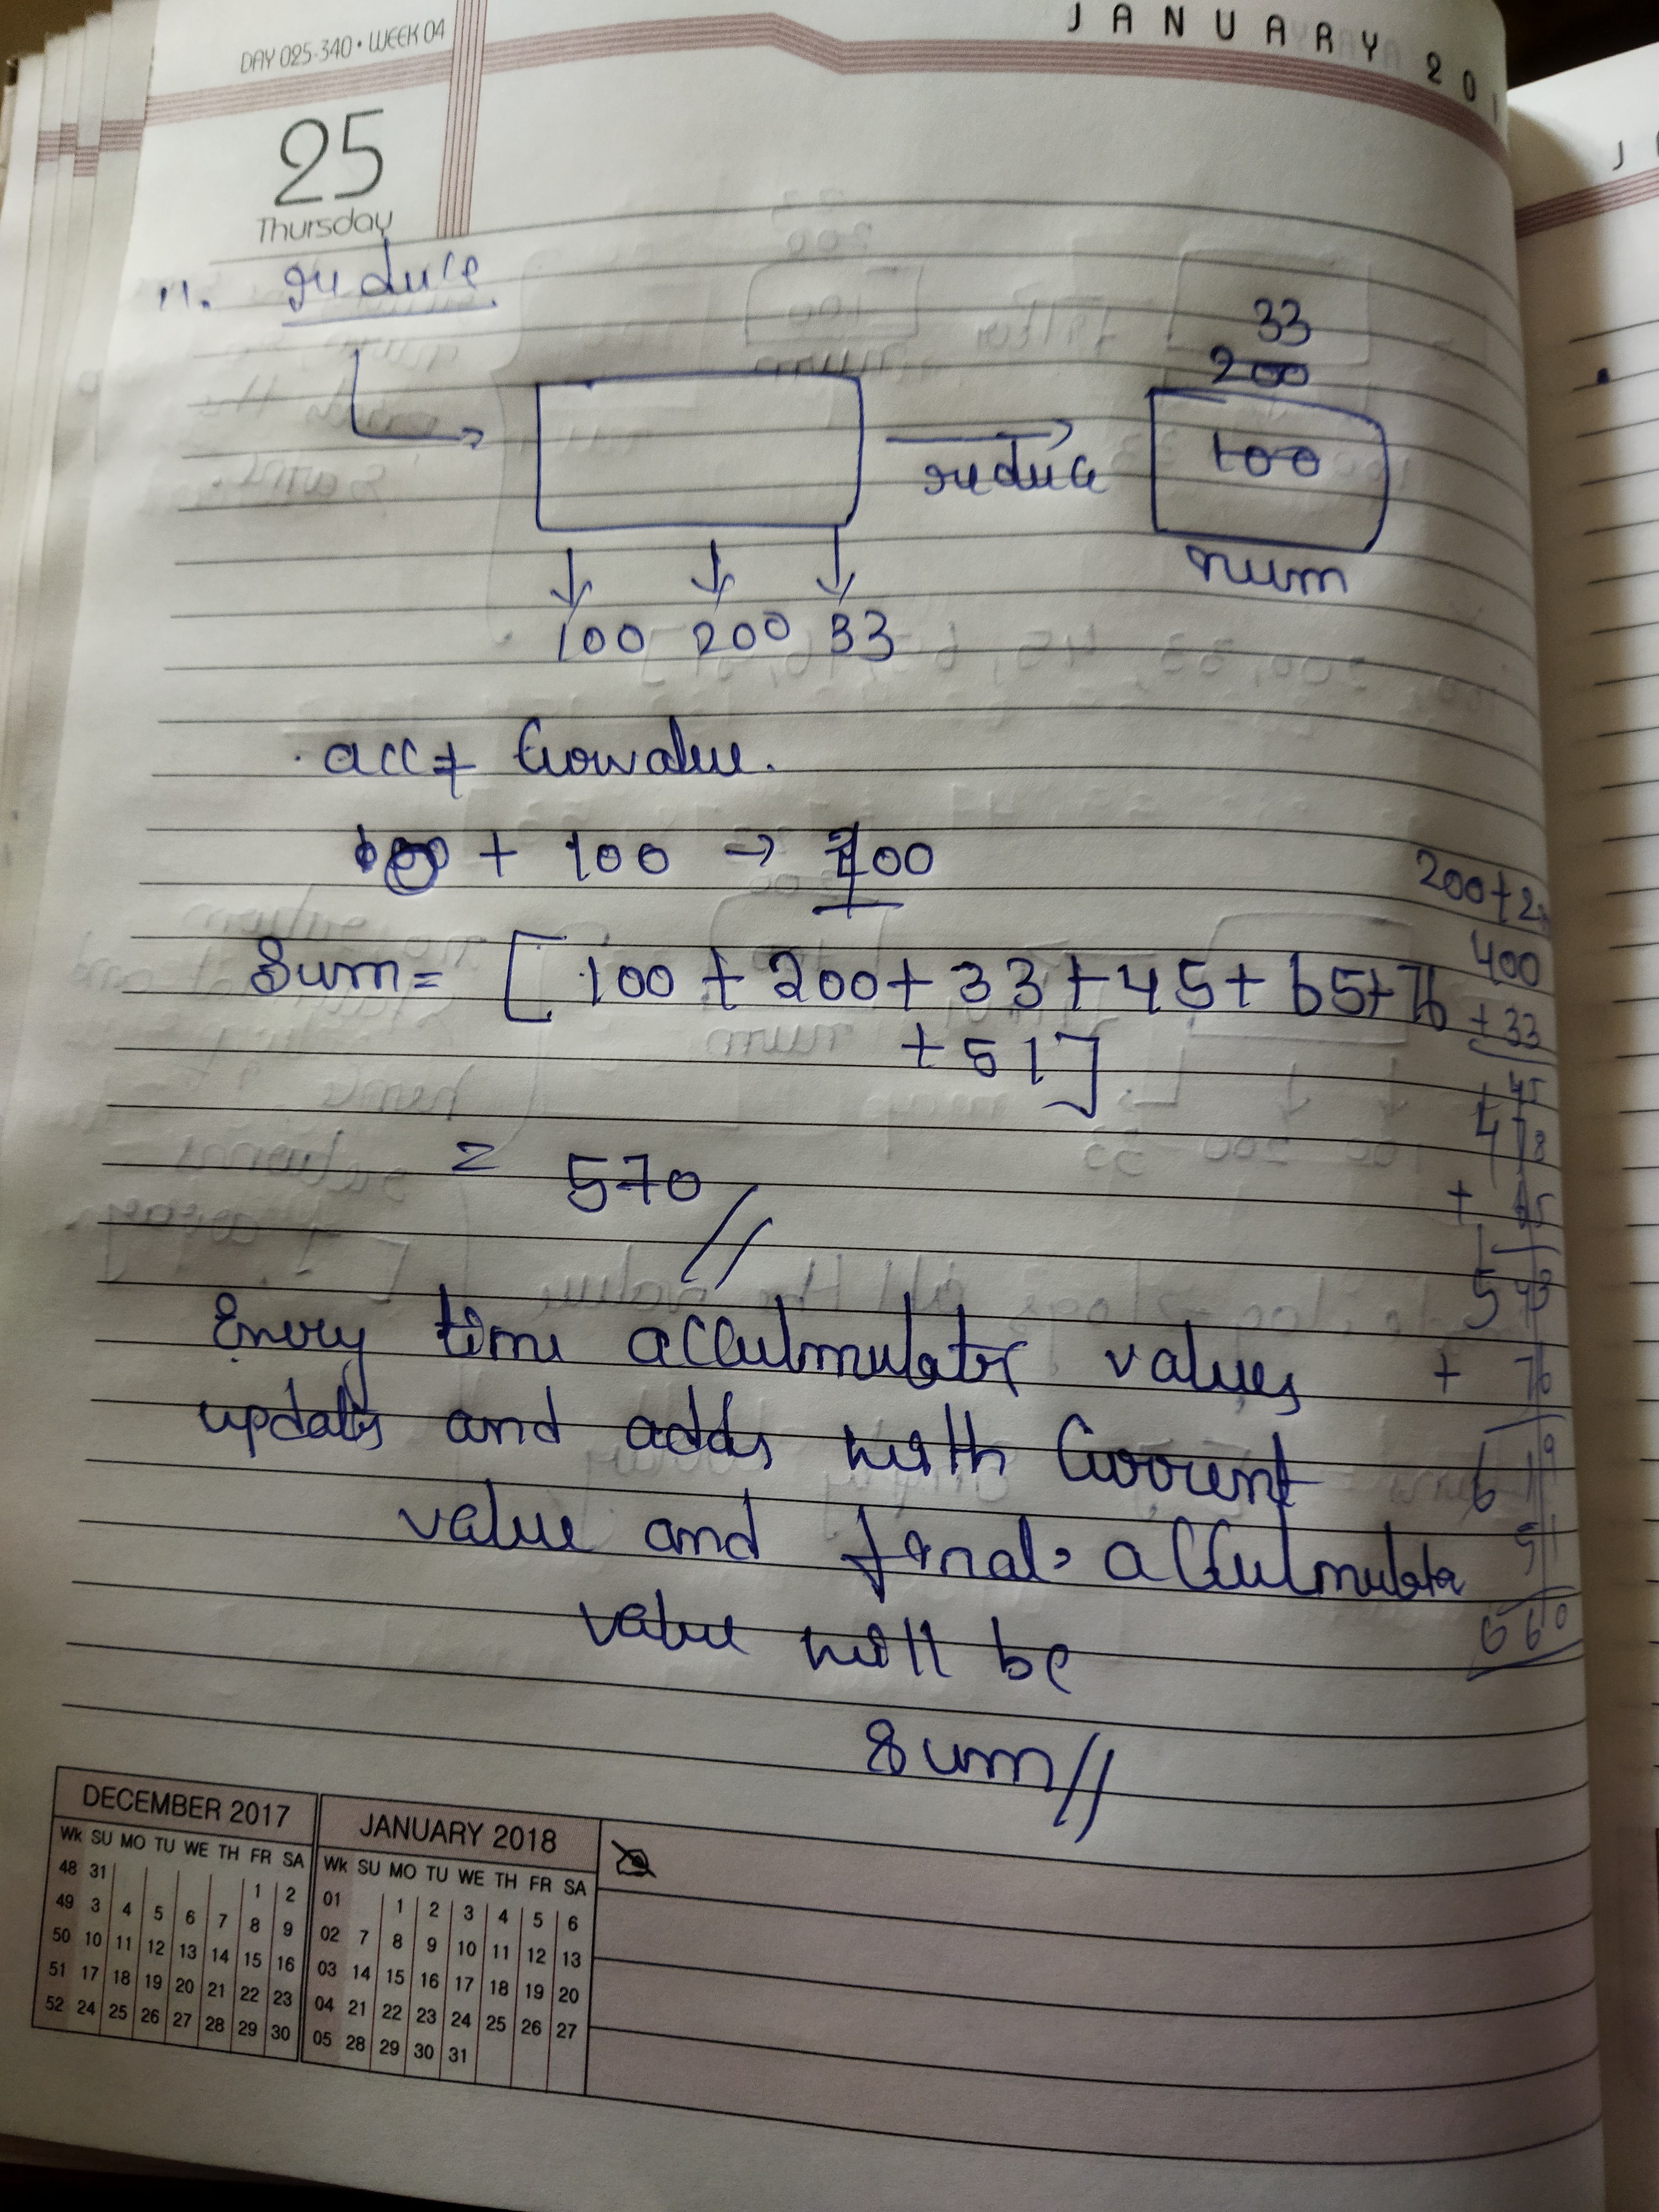 DAY 025-340 • WEEK 04
JANUARY 201
25
Thursday
11. reduce
33
200
100
reduce
num
100 200 33
acc + Currvalue.
+ 100 → 100
200+2
Sum = [100 + 200 + 33 + 45 + 65 + 76
+ 51]
= 570 //
400
+ 33
+ 45
478
+ 65
543
+ 76
619
51
660
Every time acculmulator values
updates and adds with Current
value and final acculmulator
value will be
Sum //
DECEMBER 2017
Wk SU MO TU WE TH FR SA
48 31 1 2
49 3 4 5 6 7 8 9
50 10 11 12 13 14 15 16
51 17 18 19 20 21 22 23
52 24 25 26 27 28 29 30
JANUARY 2018
Wk SU MO TU WE TH FR SA
01 1 2 3 4 5 6
02 7 8 9 10 11 12 13
03 14 15 16 17 18 19 20
04 21 22 23 24 25 26 27
05 28 29 30 31